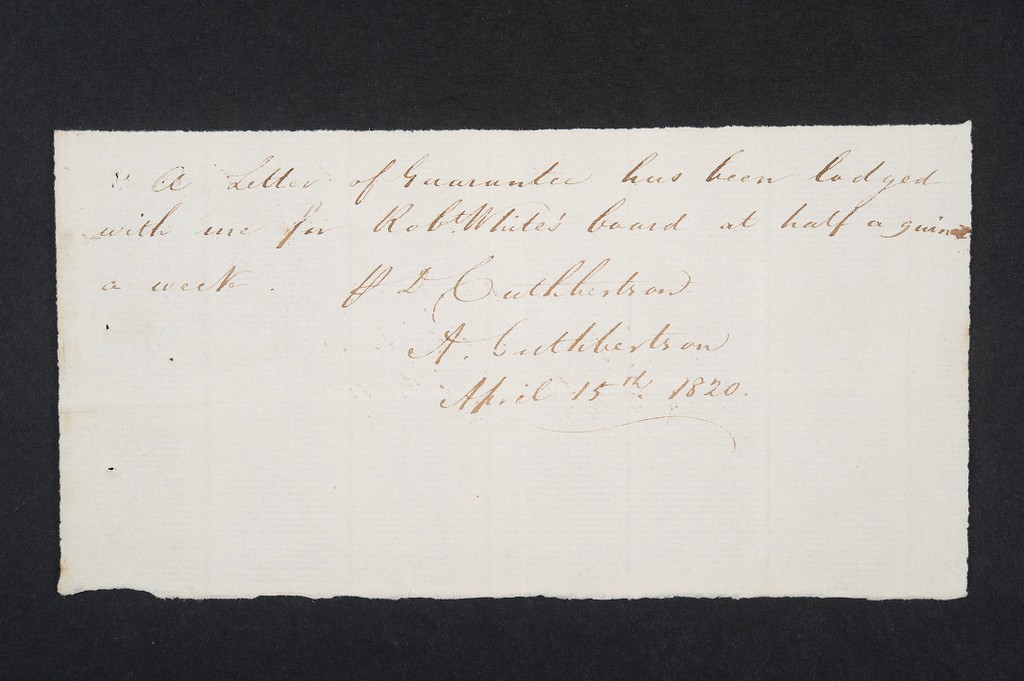 A Letter of Guarantee has been lodged
with me for Robt. White's board at half a guinea
a week.
Cuthbertson
A. Cuthbertson
April 15th. 1820.